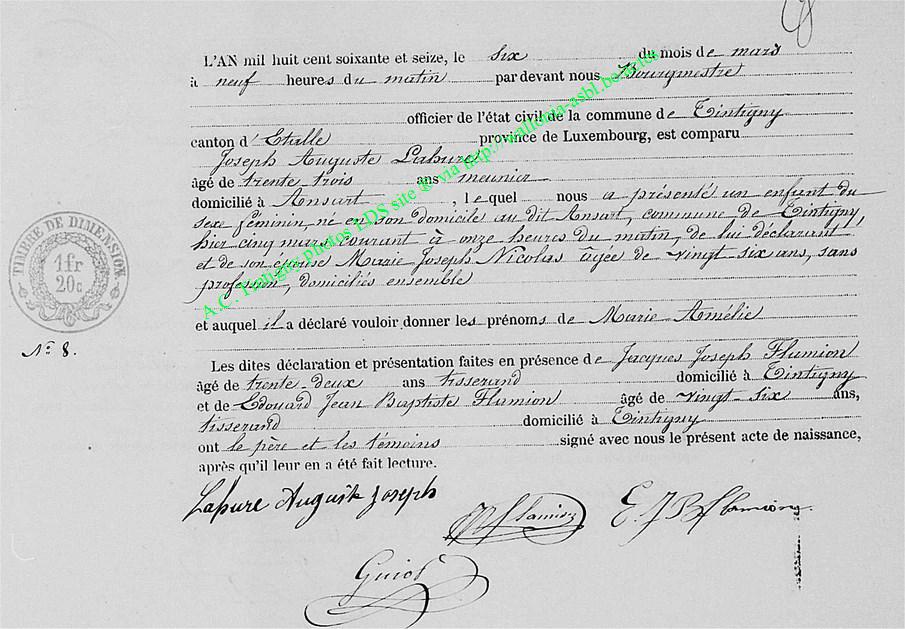 L'AN mil huit cent soixante et seize, le six du mois de mars
à neuf heures du matin par devant nous Bourgmestre
officier de l'état civil de la commune de Tintigny
canton d'Etalle province de Luxembourg, est comparu
Joseph Auguste Lahure
âgé de trente trois ans meunier
domicilié à Ansart, lequel nous a présenté un enfant du
sexe féminin, né en son domicile au dit Ansart, commune de Tintigny,
hier cinq mars courant à onze heures du matin, de lui déclarant
et de son épouse Marie Joseph Nicolas âgée de vingt six ans, sans
profession, domiciliés ensemble
TIMBRE DE DIMENSION
1 fr
20 c
N° 8.
et auquel il a déclaré vouloir donner les prénoms de Marie Amélie
Les dites déclaration et présentation faites en présence de Jacques Joseph Flamion
âgé de trente-deux ans tisserand domicilié à Tintigny
et de Edouard Jean Baptiste Flamion âgé de vingt-six ans,
tisserand domicilié à Tintigny
ont le père et les témoins signé avec nous le présent acte de naissance,
après qu'il leur en a été fait lecture.
Lahure Auguste Joseph
Flamion
E. J B Flamion
Guiot
A.C. Tintigny photos EDS site & via http://wallonia-asbl.be/actes